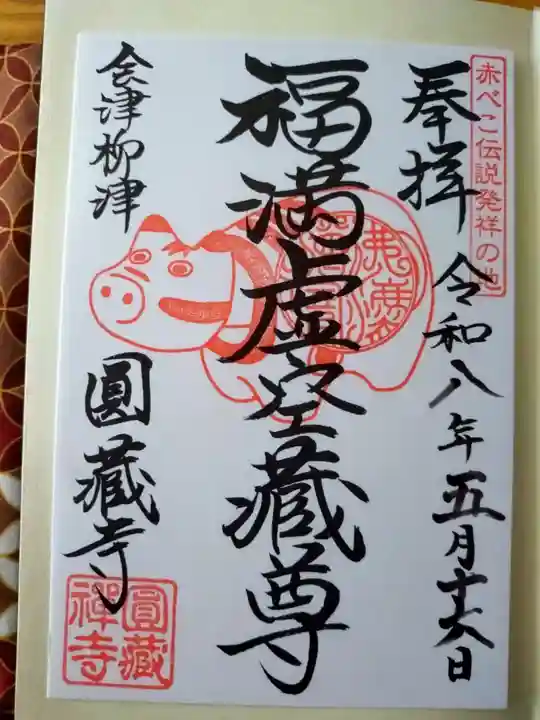 赤べこ伝説発祥の地
奉拝
令和八年五月十六日
福満虚空藏尊
会津柳津
圓藏寺
圓藏
禪寺